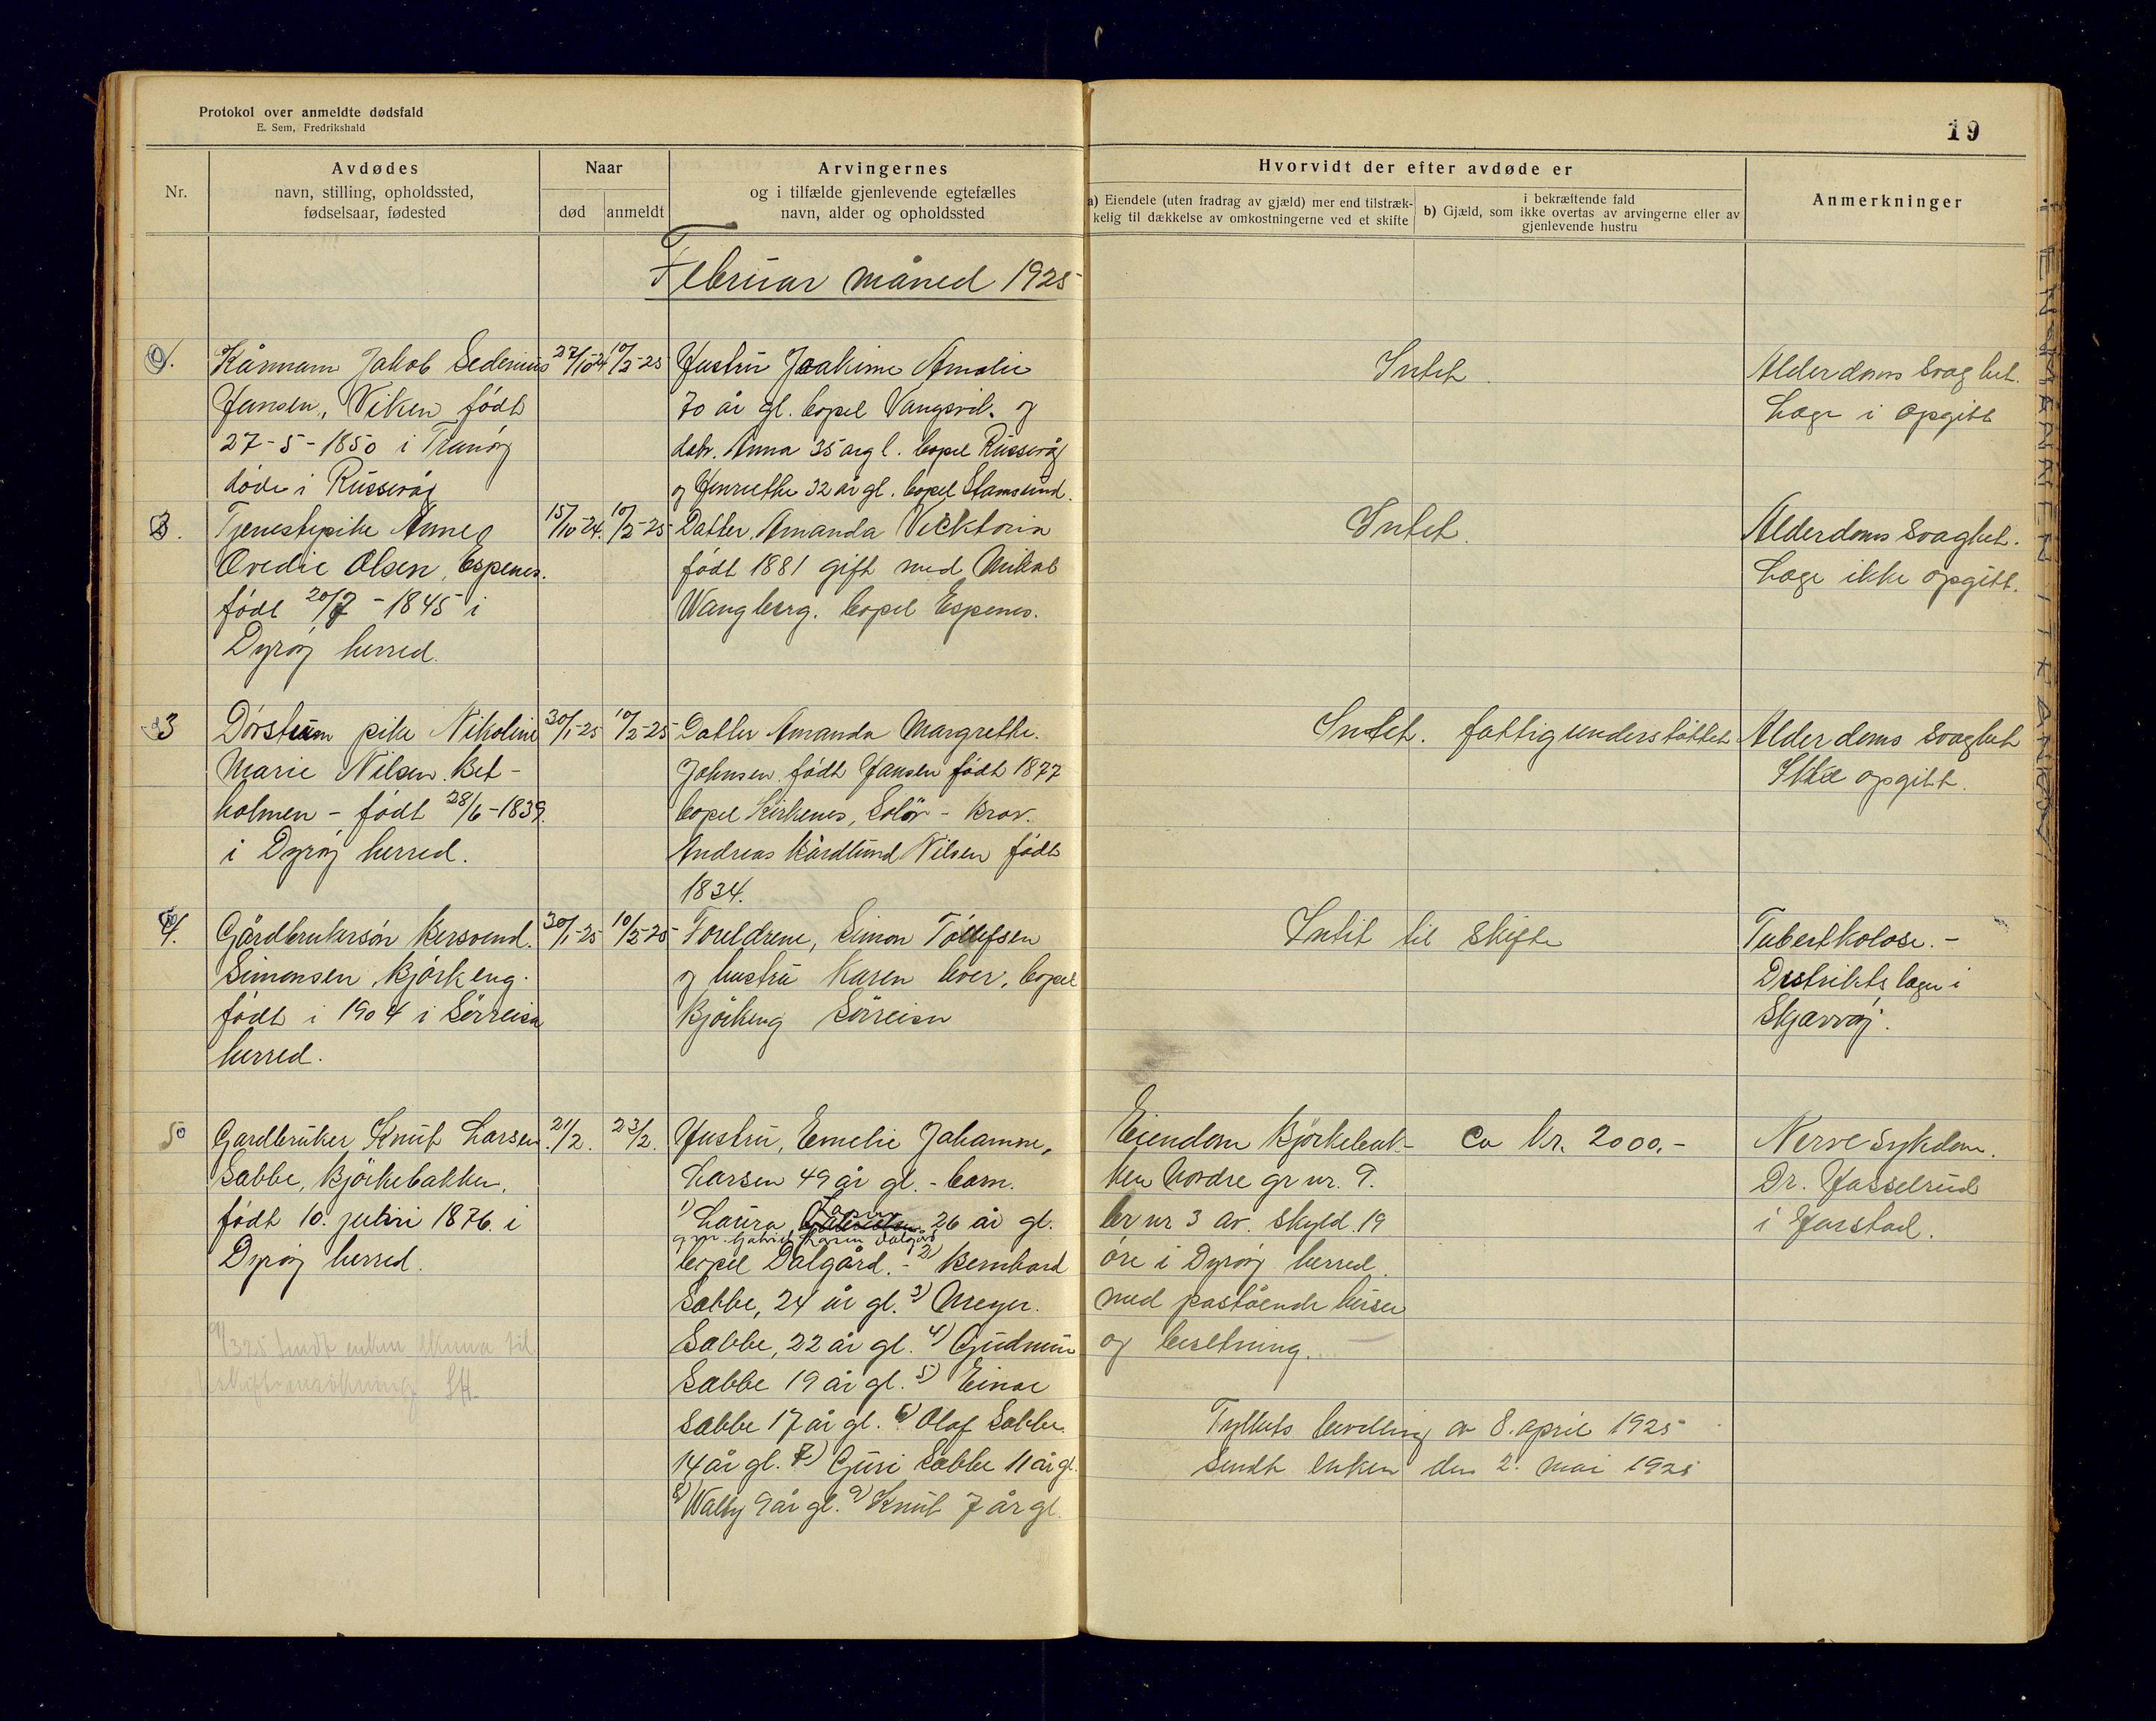 Protokol over anmeldte dødsfald
E. Sem, Fredrikshald
19
Nr.
Avdødes
navn, stilling, opholdssted,
fødselsaar, fødested
Naar
død
anmeldt
Arvingernes
og i tilfælde gjenlevende egtefælles
navn, alder og opholdssted
Hvorvidt der efter avdøde er
a) Eiendele (uten fradrag av gjæld) mer end tilstræk-
kelig til dækkelse av omkostningerne ved et skifte
i bekræftende fald
b) Gjæld, som ikke overtas av arvingerne eller av
gjenlevende hustru
Anmerkninger
Februar måned 1925
1.
Kårmann Jakob Sedenius
Jansen, Viken født
27-5-1850 i Tranøy
døde i Russevåg
27/10-24
10/2-25
Hustru Joakime Amalie
70 år gl. bopel Vangsvik og
datr. Anna 35 årgl. bopel Russevåg
og Henrethe 32 år gl. bopel Stamsund.
Intet
Alderdoms svaghet.
Læge i opgitt
Tjenestepike Anne
Ovedie Olsen, Espenes.
født 20/7-1845 i
Dyrøy herred.
15/10-24.
10/2-25
Datter Amanda Vicktoria
født 1881 gift med Mikal
Wangberg. bopel Espenes.
Intet.
Alderdoms svaghet.
Læge ikke opgitt.
3
Dørstum pike Nikoline
Marie Nilsen. Bet-
holmen - født 28/6-1839.
i Dyrøy herred.
30/1-25
10/2-25
Datter Amanda Margrethe.
Johnsen født Jansen født 1877
bopel Kirkenes, Solør - Bror.
Andreas Nilsen født
1834.
Intet. fattigunderstøttet
Alderdoms svaghet
Ikke opgitt.
4.
Gårdbrukersøn Bersvend.
Simonsen, Bjørkeng.
født i 1904 i Sørreisa
herred.
30/1-25
10/2-25
Foreldrene, Simon Tollefsen
og hustru Karen lever, bopel
Bjørkeng Sørreisa
Intet til skifte
Tuberkolose.-
Distrikts læge i
Skjærvøy.
5
Gardbruker Knut Larsen
Sabbe, Bjørkebakken,
født 10. 1876. i
Dyrøy herred.
21/2.
23/2.
Hustru, Emelie Johanne,
Larsen 49 år gl. - barn.
1) Laura Larsen 26 år gl.
bopel Dalgård. - 2) Bernhard
Sabbe, 24 år gl. 3) Meyer.
Sabbe, 22 år gl. 4) Gudrun
Sabbe 19 år gl. 5) Einar
Sabbe 17 år gl. 6) Olaf Sabbe
14 år gl. 7) Guri Sabbe 11 år gl.
8) Wally 9 år gl. 9) Knut 7 år gl.
Eiendom Bjørkebak-
ken Nordre gr nr. 9.
br nr 3 av skyld. 19
øre i Dyrøy herred.
med påstående huser
og besetning.
Ca kr. 2000.-
Nerve sykdom.
Dr. Hasselrud
i Harstad.
bevilling av 8. april 1925
sendt enken den 2. mai 1925